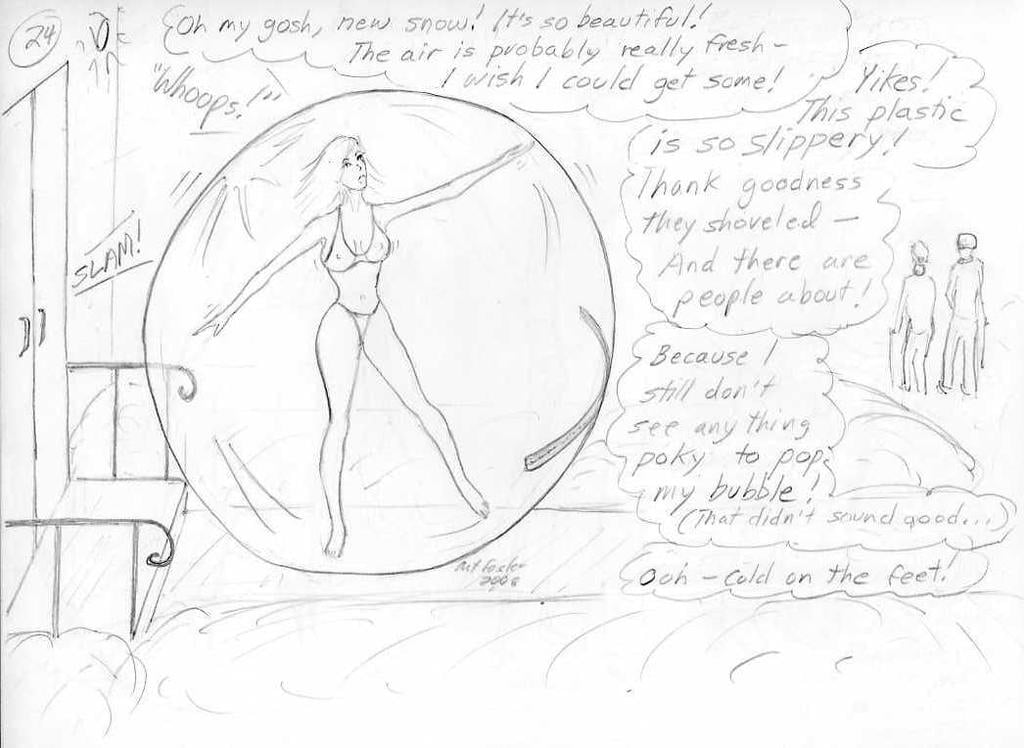 24
Oh my gosh, new snow! It's so beautiful!
The air is probably really fresh -
I wish I could get some!
"Whoops!"
Yikes!
This plastic
is so slippery!
Thank goodness
they shoveled -
And there are
people about!
SLAM!
Because I
still don't
see any thing
poky to pop
my bubble!
(That didn't sound good...)
Ooh - cold on the feet!
2006